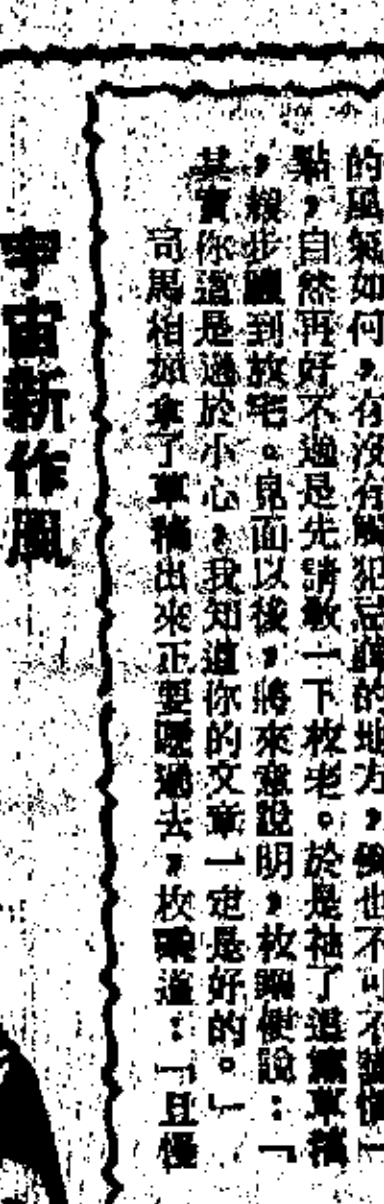 的風氣如何，有沒有觸犯忌諱的地方，倒也不可不謹慎一
點，自然再好不過是先請敎一下枚老。於是袖了這篇草稿
，緩步踱到枚宅。見面以後，將來意說明，枚臯便說：「
其實你這是過於小心，我知道你的文章一定是好的。」
司馬相如拿了草稿出來正要遞過去，枚臯道：「且慢
宇宙新作風